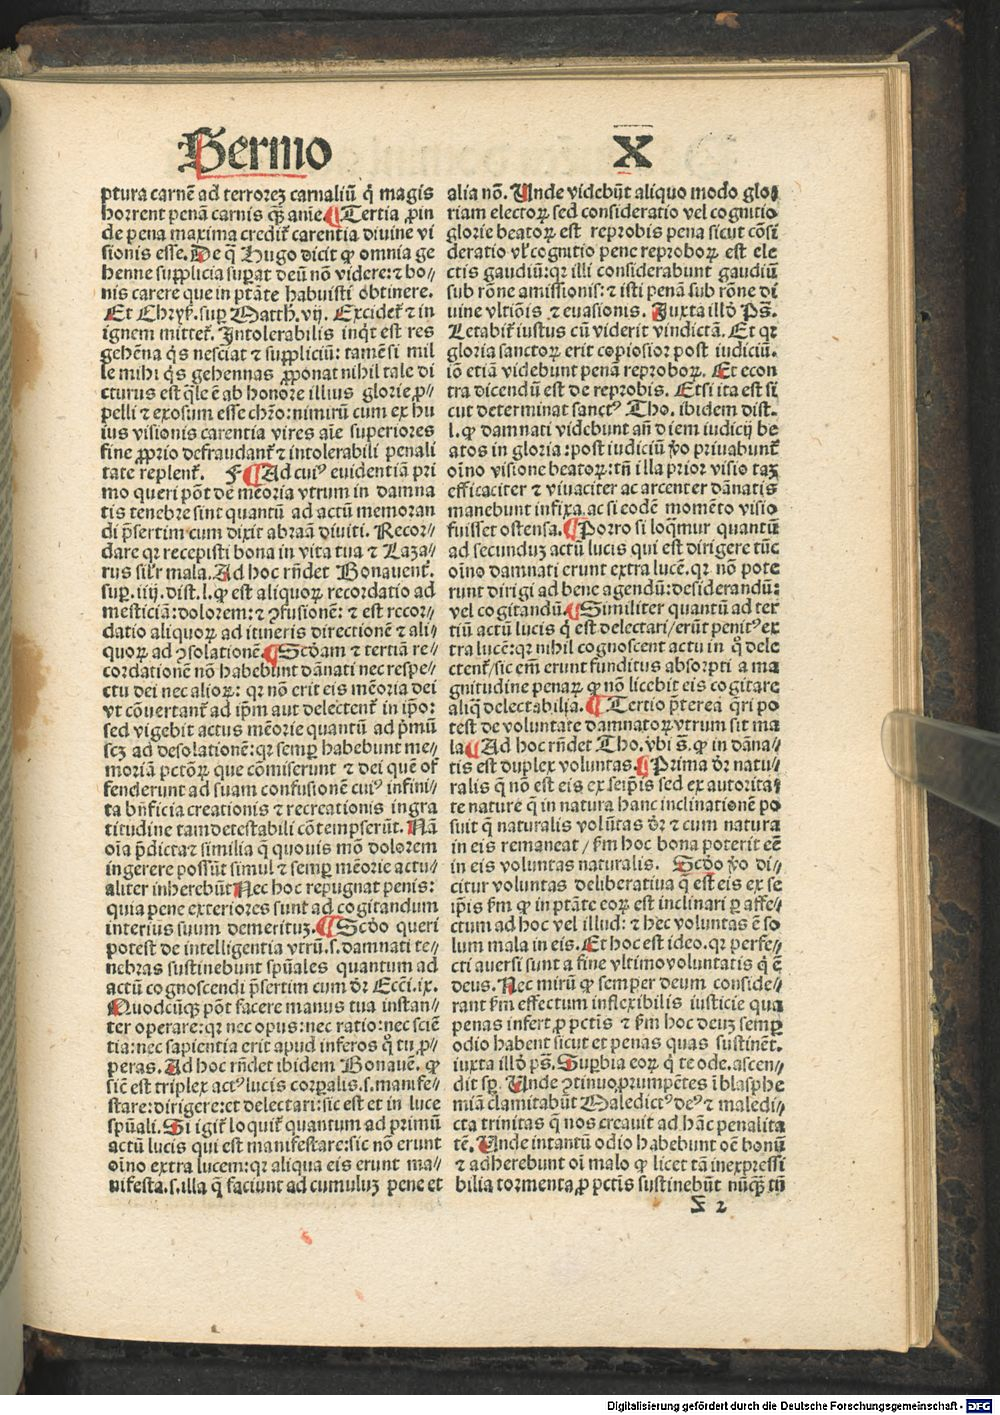 Sermo X
ptura carnē ad terrorez carnaliū q̇ magis
horrent penā carnis qꝫ anie ¶ Tertia ꝓin
de pena maxima credit᷑ carentia diuine vi
sionis esse. De q̄ Hugo dicit ꝙ omnia ge
henne supplicia suꝑat deū nō videre: ⁊ bo⸗
nis carere que in ptāte habuisti obtinere.
Et Chryſ. suꝑ Matth. vij. Excidet᷑ ⁊ in
ignem mittet᷑. Intolerabilis inq̇t est res
gehēna q̇s nesciat ⁊ suppliciū: tamē si mil
le mihi q̇s gehennas ꝓponat nihil tale di
cturus est q̄le ē ab honore illius glorie ꝓ⸗
pelli ⁊ exosum esse chro: nimirū cum ex hu
ius visionis carentia vires aīe superiores
fine ꝓprio defraudant᷑ ⁊ intolerabili penali
tate replent᷑. F ¶ Ad cuiꝰ euidentiā pri
mo queri pōt de mēoria vtrum in damna
tis tenebre sint quantū ad actū memoran
di p̄sertim cum dixit abraā diuiti. Recor⸗
dare qꝛ recepisti bona in vita tua ⁊ Laza⸗
rus sil'r mala. Ad hoc rn̄det Bonauent᷑.
suꝑ. iiij. dist. l. ꝙ est aliquoꝝ recordatio ad
mesticiā: dolorem: ⁊ ꝯfusionē: ⁊ est recor⸗
datio aliquoꝝ ad itineris directionē ⁊ ali⸗
quoꝝ ad ꝯsolationē. ¶ Scḋam ⁊ tertiā re⸗
cordationē nō habebunt dānati nec respe⸗
ctu dei nec alioꝝ: qꝛ nō erit eis mēoria dei
vt cōuertant᷑ ad ip̄m aut delectent᷑ in ip̄o:
sed vigebit actus mēorie quantū ad p̄mū
scꝫ ad desolationē: qꝛ semꝑ habebunt me⸗
moriā pctōꝝ que cōmiserunt ⁊ dei quē of
fenderunt ad suam confusionē cuiꝰ infini⸗
ta bn̄ficia creationis ⁊ recreationis ingra
titudine tam detestabili cōtempserūt. Nā
oīa p̄dicta ⁊ similia q̄ quouis mō dolorem
ingerere possūt simul ⁊ semꝑ mēorie actu⸗
aliter inherebūt Nec hoc repugnat penis:
quia pene exteriores sunt ad cogitandum
interius suum demerituꝫ. ¶ Scḋo queri
potest de intelligentia vtrū. s. damnati te⸗
nebras sustinebunt spūales quantum ad
actū cognoscendi p̄sertim cum dr̄ Ecci. ix.
Quodcūqꝫ pōt facere manus tua instan⸗
ter operare: qꝛ nec opus: nec ratio: nec sciē
tia: nec sapientia erit apud inferos q̊ tu ꝓ⸗
peras. Ad hoc rn̄det ibidem Bonauē. ꝙ
sic̄ est triplex actꝰ lucis corꝑalis. s. manife⸗
stare: dirigere: et delectari: sic est et in luce
spūali. Si igit᷑ loquit᷑ quantum ad primū
actū lucis qui est manifestare: sic nō erunt
oīno extra lucem: qꝛ aliqua eis erunt ma⸗
nifesta. s. illa q̄ faciunt ad cumuluꝫ pene et
alia nō. Unde videbūt aliquo modo glo⸗
riam electoꝝ sed consideratio vel cognitio
glorie beatoꝝ est reprobis pena sicut cōsi
deratio vl' cognitio pene reproboꝝ est ele
ctis gaudiū: qꝛ illi considerabunt gaudiū
sub rōne amissionis: ⁊ isti penā sub rōne di
uine vltiōis ⁊ euasionis. Juxta illḋ Ps̄.
Letabit᷑ iustus cū viderit vindictā. Et qꝛ
gloria sanctoꝝ erit copiosior post iudiciū.
iō etiā videbunt penā reproboꝝ. Et econ
tra dicendū est de reprobis. Etsi ita est si
cut determinat sanctꝰ Tho. ibidem dist.
l. ꝙ damnati videbunt an̄ diem iudicij be
atos in gloria: post iudiciū ṽo priuabunt᷑
oīno visione beatoꝝ: tn̄ illa prior visio taꝫ
efficaciter ⁊ viuaciter ac arcenter dānatis
manebunt infixa. ac si eodē momēto visio
fuisset ostensa. ¶ Porro si loq̄mur quantū
ad secunduꝫ actū lucis qui est dirigere tūc
oīno damnati erunt extra lucē. qꝛ nō pote
runt dirigi ad bene agendū: desiderandū:
vel cogitandū. ¶ Similiter quantū ad ter
tiū actū lucis q̇ est delectari / erūt penitꝰ ex
tra lucē: qꝛ nihil cognoscent actu in q̊ dele
ctent᷑ / sic em̄ erunt funditus absorpti a ma
gnitudine penaꝝ ꝙ nō licebit eis cogitare
aliq̄ delectabilia. ¶ Tertio p̄terea q̄ri po
test de voluntate damnatoꝝ vtrum sit ma
la ¶ Ad hoc rn̄det Tho. vbi s̄. ꝙ in dāna⸗
tis est duplex voluntas. ¶ Prima dr̄ natu⸗
ralis q̄ nō est eis ex seip̄is sed ex autorita⸗
te nature q̄ in natura hanc inclinationē po
suit q̄ naturalis volūtas dr̄ ⁊ cum natura
in eis remaneat / ẜm hoc bona poterit eē
in eis voluntas naturalis. Scḋo ṽo di⸗
citur voluntas deliberatiua q̄ est eis ex se
ip̄is ẜm ꝙ in ptāte eoꝝ est inclinari ꝑ affe⸗
ctum ad hoc vel illud: ⁊ hec voluntas ē so
lum mala in eis. Et hoc est ideo. qꝛ perfe⸗
cti auersi sunt a fine vltimo voluntatis q̇ ē
deus. Nec mirū ꝙ semper deum conside⸗
rant ẜm effectum inflexibilis iusticie qua
penas infert ꝓ pctīs ⁊ ẜm hoc deuꝫ semꝑ
odio habent sicut et penas quas sustinēt.
iuxta illḋ ps̄. Suꝑbia eoꝝ q̇ te ode. ascen⸗
dit sꝑ. Unde ꝯtinuo ꝓrumpētes ī blasphe
miā clamitabūt Maledictꝰ deꝰ ⁊ maledi⸗
cta trinitas q̄ nos creauit ad hāc penalita
tē. Unde intantū odio habebunt oē bonū
⁊ adherebunt oī malo ꝙ licet tā inexpressi
bilia tormenta ꝓ pctīs sustinebūt nūqꝫ tn̄
X 2
Digitalisierung gefördert durch die Deutsche Forschungsgemeinschaft - DFG